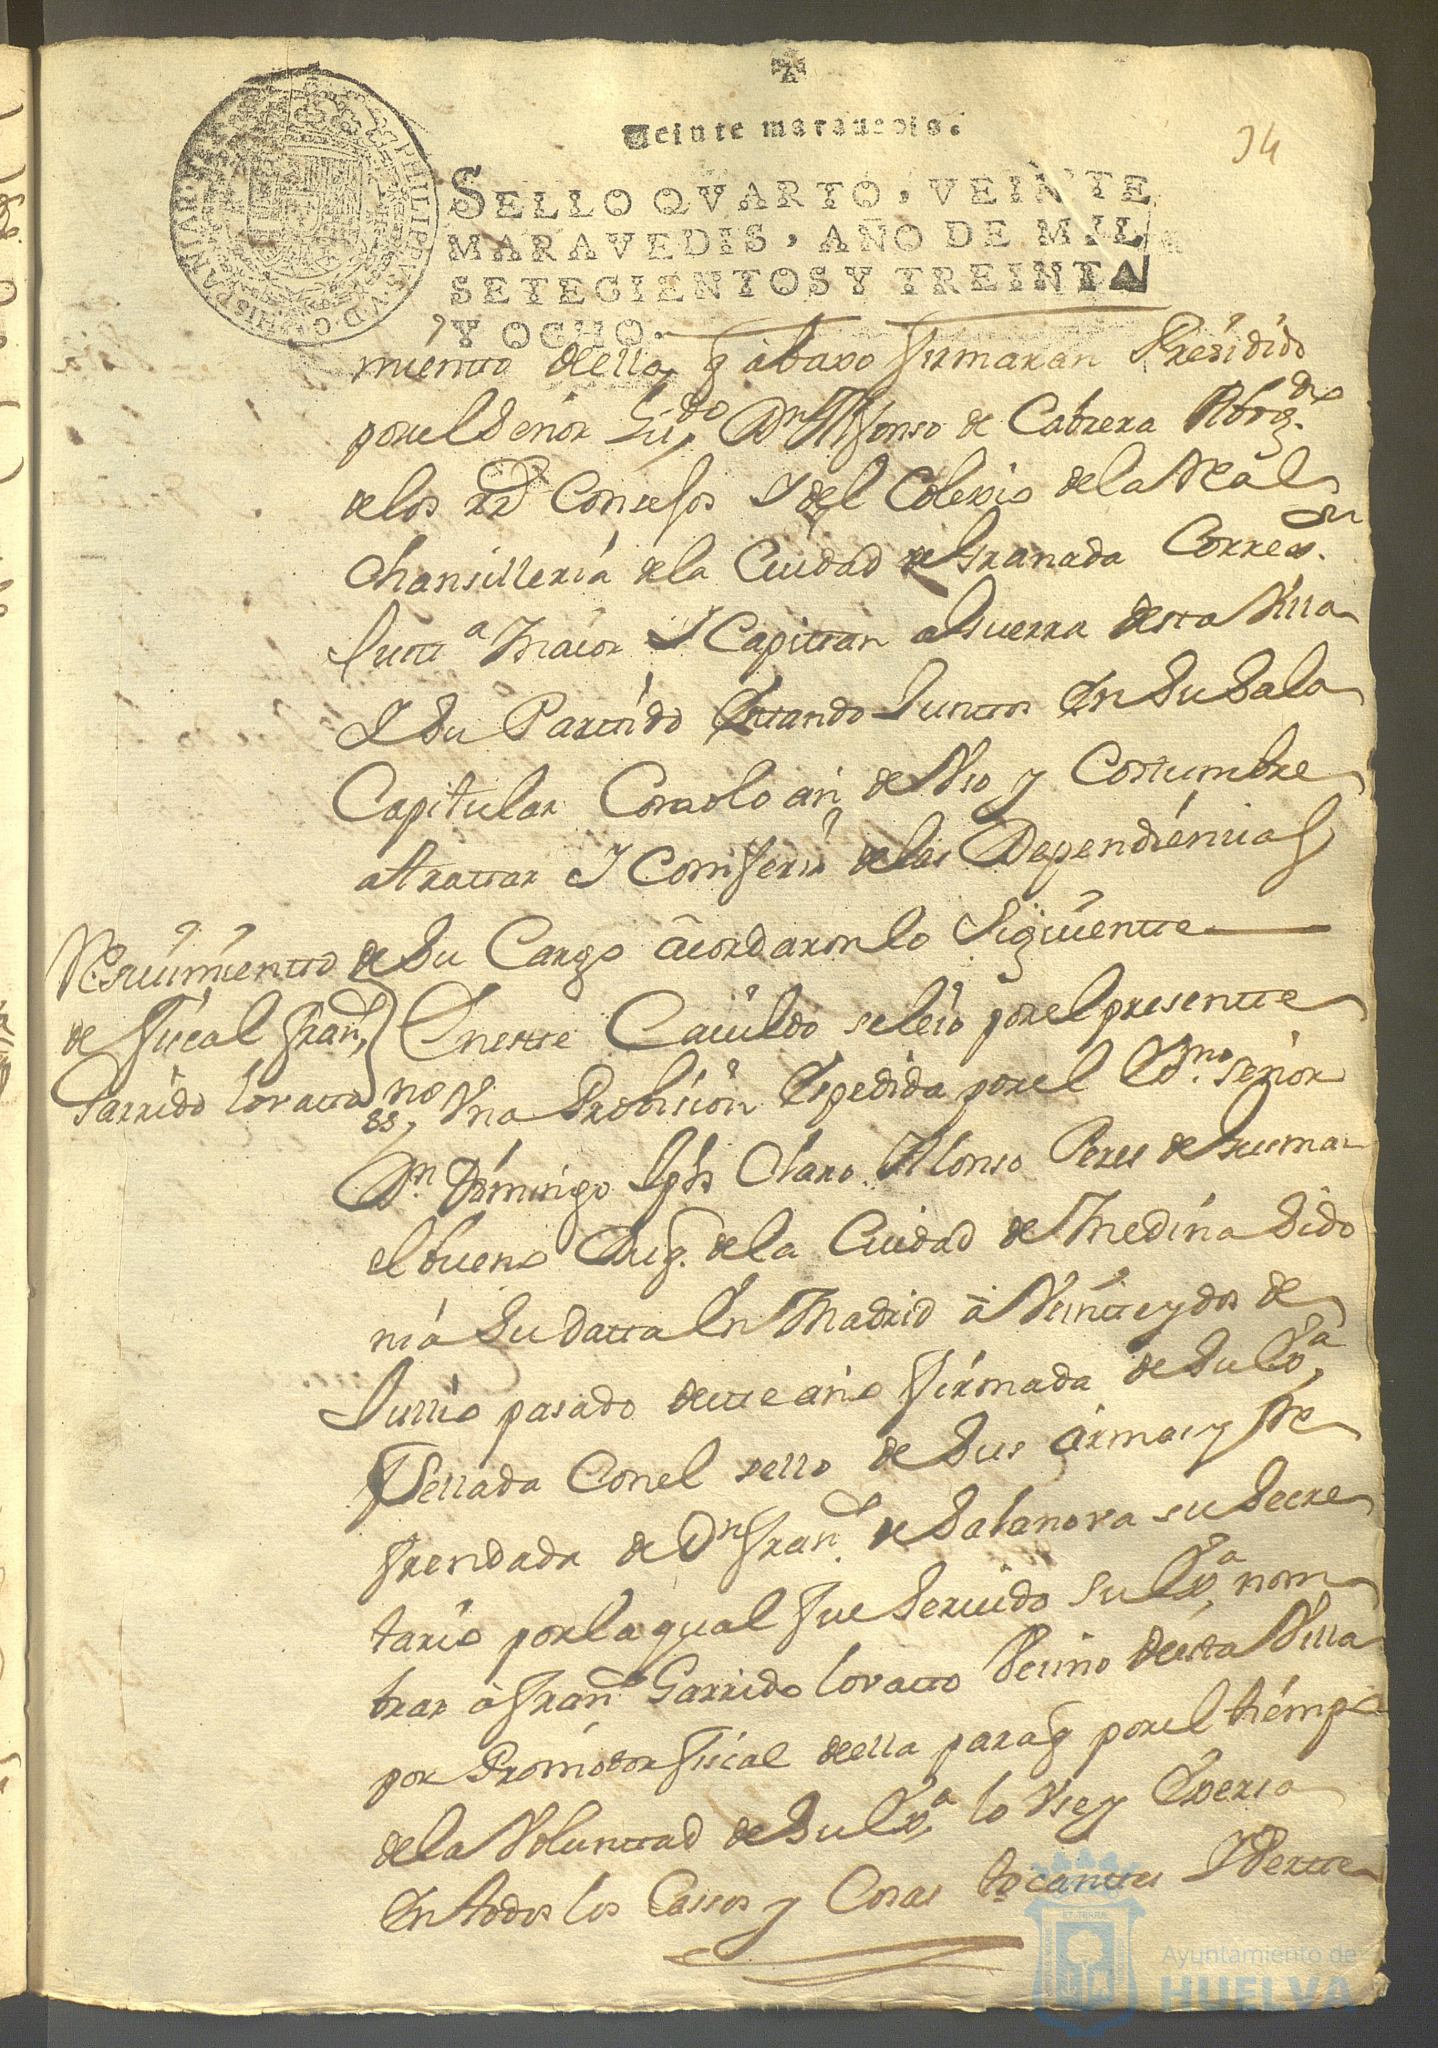 Veinte maravedis.
34
SELLO QVARTO, VEINTE
MARAVEDIS, AÑO DE MIL
SETECIENTOS Y TREINTA
Y OCHO.
PHILIPPUS V D G HISPANIAR
miento della, q abaxo firmaran Presidido
por el Señor Lizdo Dn Alfonso de Cabrera Abogdo
de los Rs Consejos Y del Colexio de la Real
Chansilleria de la Ciudad de Granada Corregor
Justta Maior Y Capittan a Guerra desta Villa
Y Su Partido Estando Junttos En Su Sala
Capitular Como lo an de Vso y Costumbre
a trattar Y Comferir de las Dependiencias
de Su Cargo acordaron lo Siguientte
Resiuimientto
de Fiscal Franco
Garrido Lovatto
En estte Cauildo se leio por el presentte
ssno Vna Probision Espedida por el Exmo Señor
Dn Domingo Jph Claro Alonso Peres de Gusman
el bueno Duq. de la Ciudad de Medina Sido
nia Su datta En Madrid à Veintte y dos de
Jullio pasado destte año firmada de Su Exa
Sellada Con el sello de Sus armas y Re
frendada de Dn Franco de Salanova su Secre
tario por la qual fue Seruido Su Exa nom
brar à Franco Garrido Lovatto Vecino desta Villa
por Promotor fiscal della para q por el tiempo
de la Volunttad de Su Exa lo Vse y Exersa
En todos los Cassos y Cosas tocanttes Y Pertte
Ayuntamiento de
HUELVA